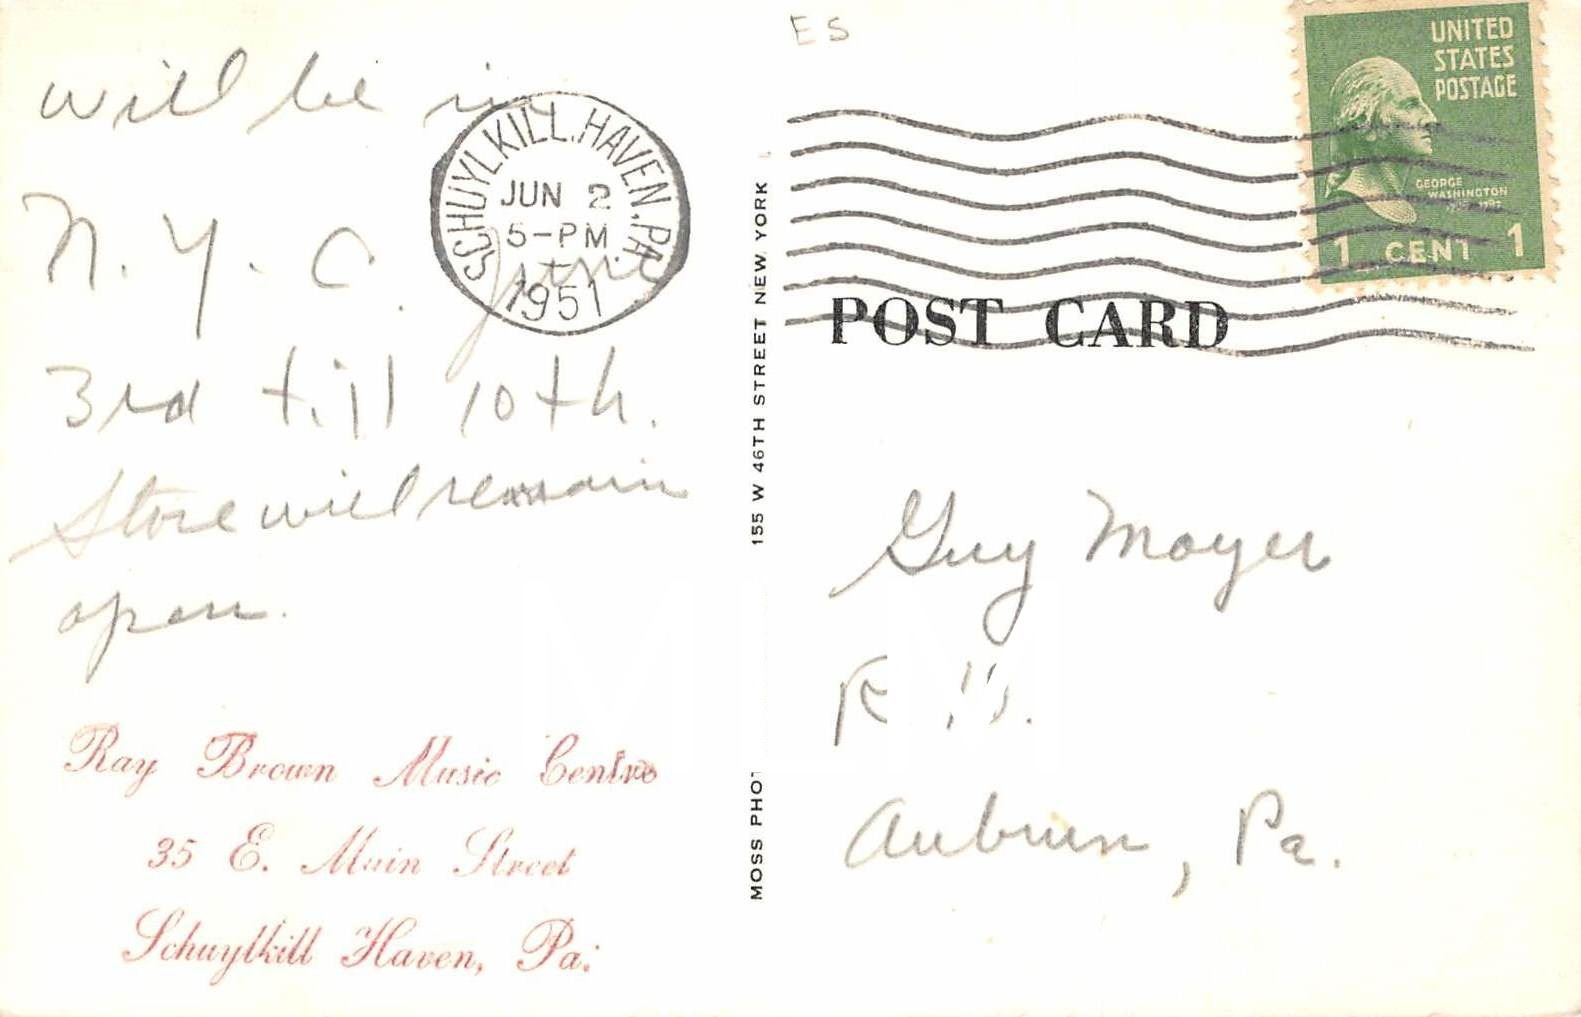 will be in
N. Y. C. June
3rd till 10th.
Store will remain
open.
Ray Brown Music Centre
35 E. Main Street
Schuylkill Haven, Pa.
SCHUYLKILL HAVEN, PA.
JUN 2
5-PM
1951
MOSS PHOT
155 W 46TH STREET NEW YORK
ES
UNITED
STATES
POSTAGE
GEORGE
WASHINGTON
1 CENT 1
POST CARD
Guy Moyer
R.D.
Auburn, Pa.
MLM